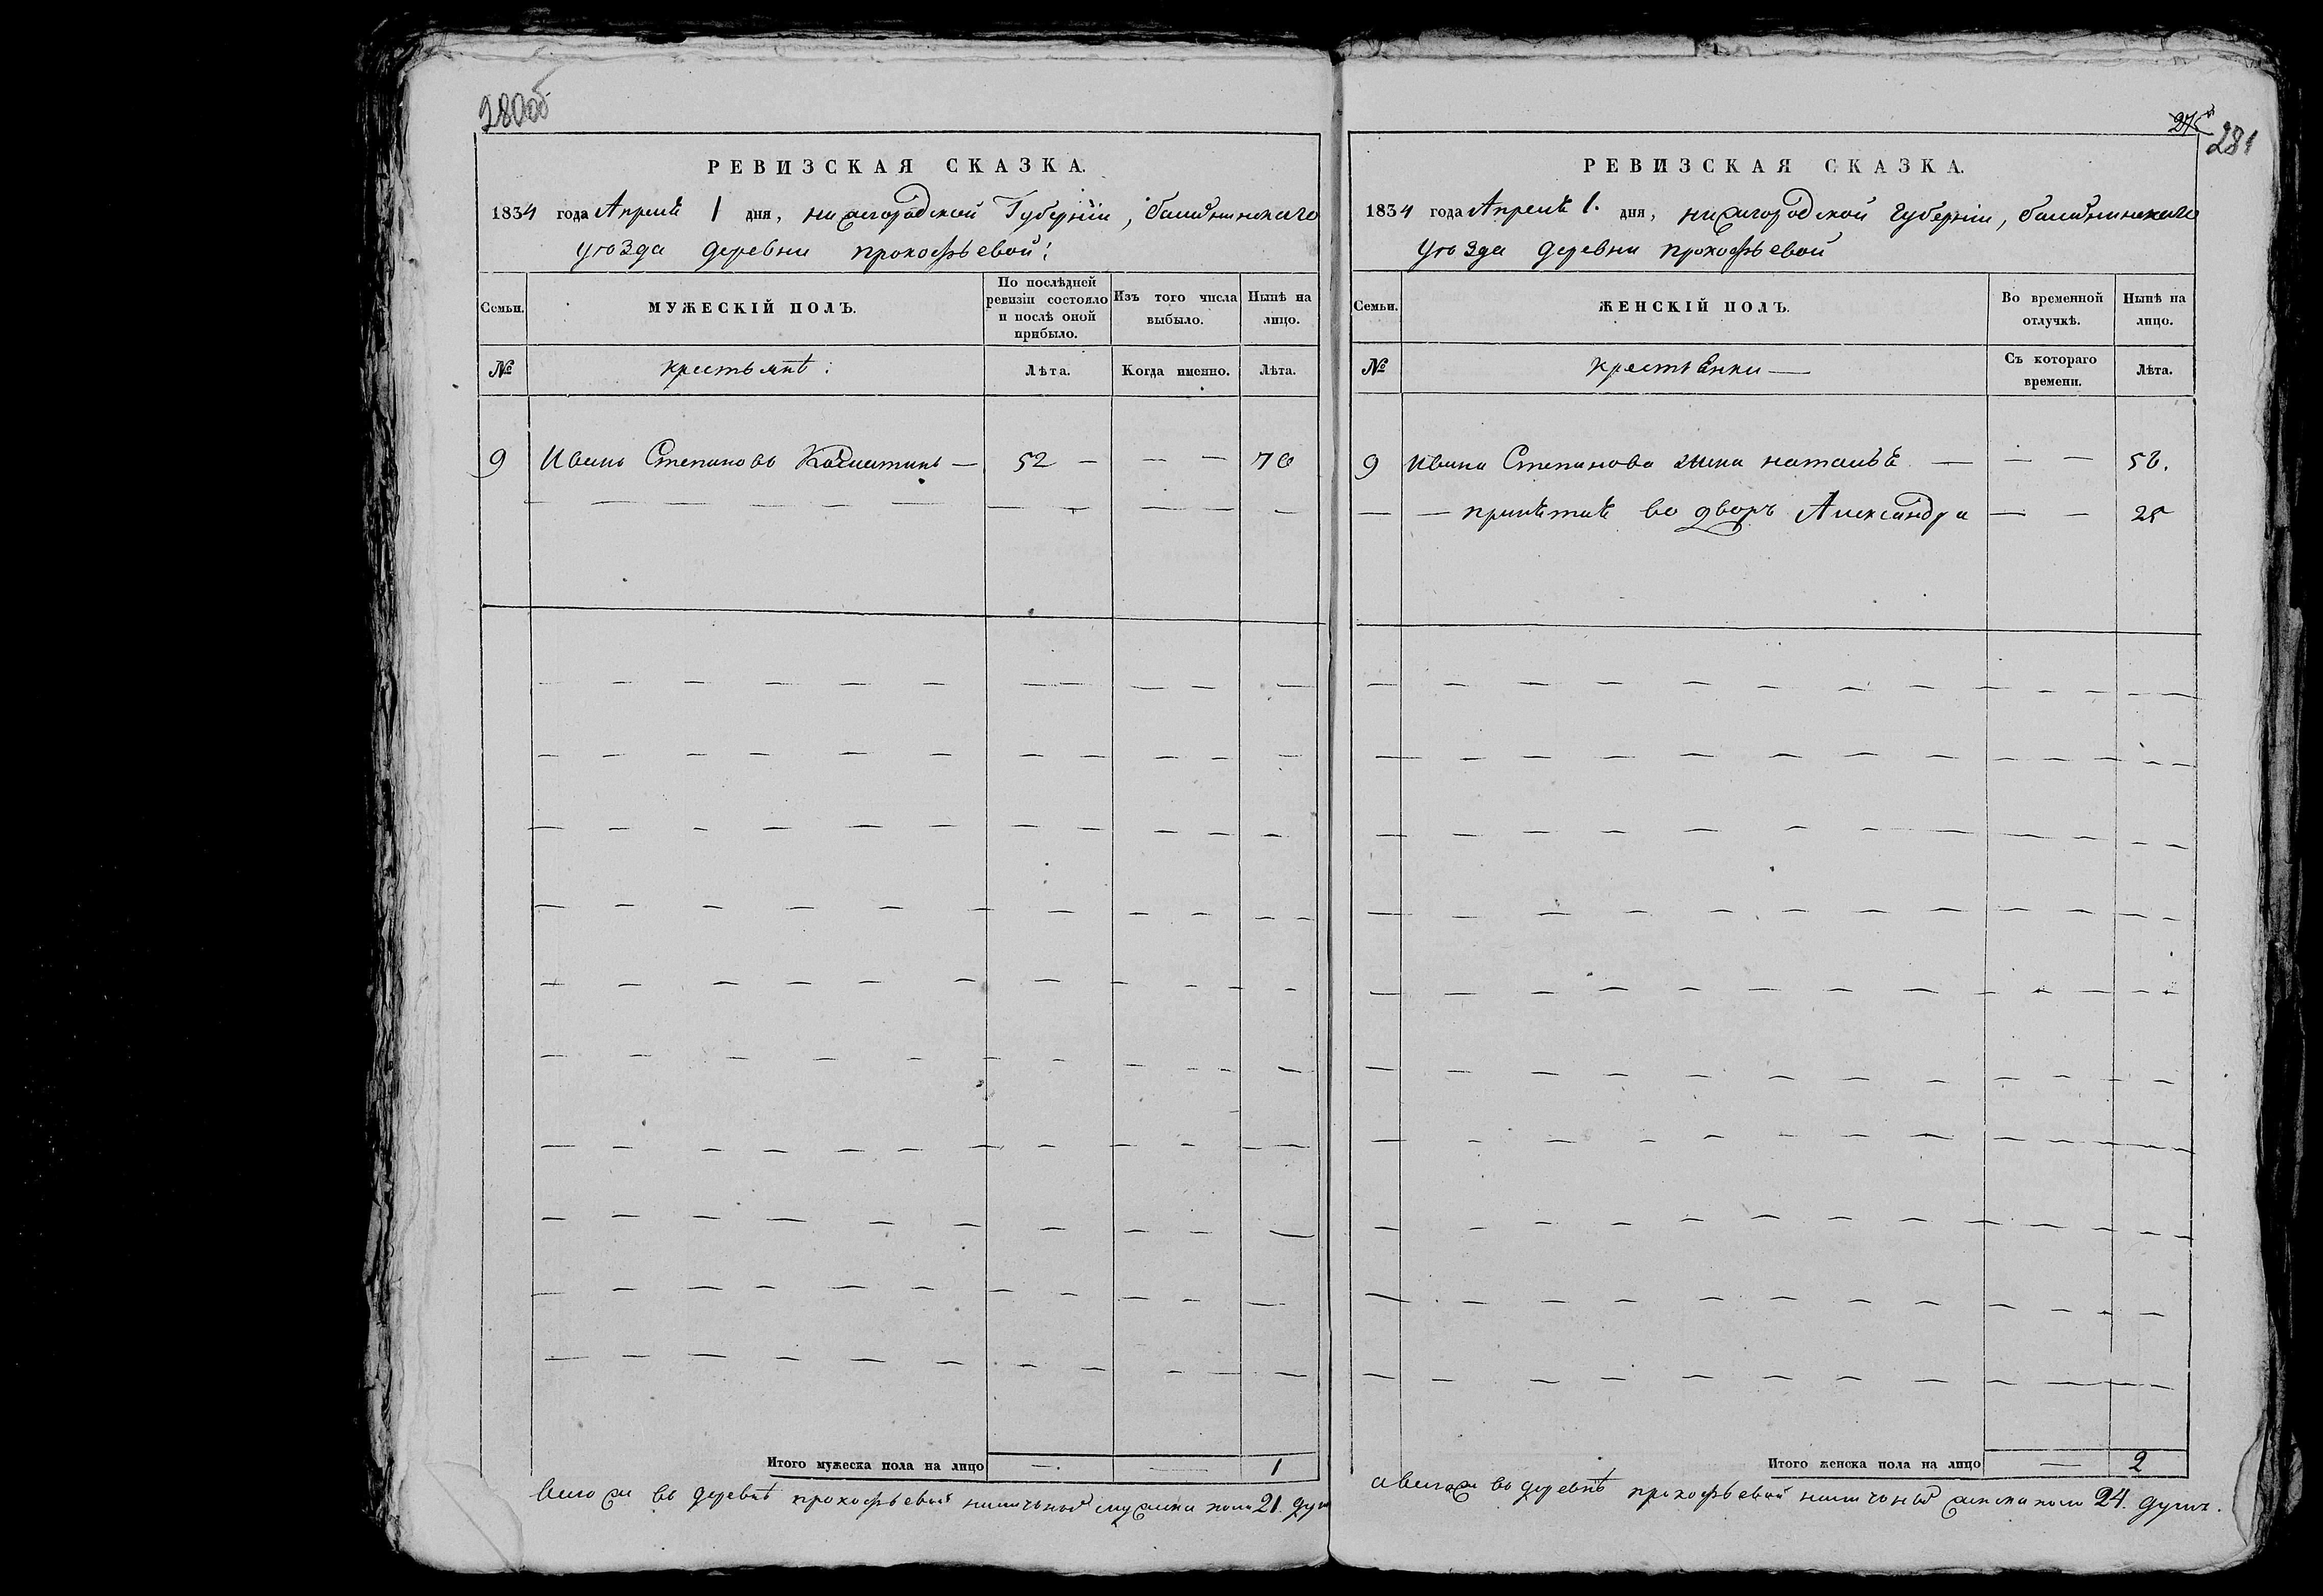 280об
РЕВИЗСКАЯ СКАЗКА.
1834 года Апреля 1 дня, нижегородской Губерніи, балахнинскаго
уѣзда деревни прокофьевой:
Семьи.
МУЖЕСКІЙ ПОЛЪ.
По послѣдней ревизіи состояло и послѣ оной прибыло.
Изъ того числа выбыло.
Нынѣ на лицо.
№
крестьянѣ:
Лѣта.
Когда именно.
Лѣта.
9 Иванъ Степановъ — 52 — — — 70
Итого мужеска пола на лицо — — 1
въ деревнѣ прокофьевой мужска пола 21 душ
275
281
РЕВИЗСКАЯ СКАЗКА.
1834 года Апреля 1. дня, нижегородской губерніи, балахнинскаго
уѣзда деревни прокофьевой
Семьи.
ЖЕНСКІЙ ПОЛЪ.
Во временной отлучкѣ.
Нынѣ на лицо.
№
крестьянки —
Съ котораго времени.
Лѣта.
9 Ивана Степанова жена наталья — — — 56.
— — принятая во дворъ Александра — — 25
Итого женска пола на лицо — 2
въ деревнѣ прокофьевой женска пола 24. душъ.